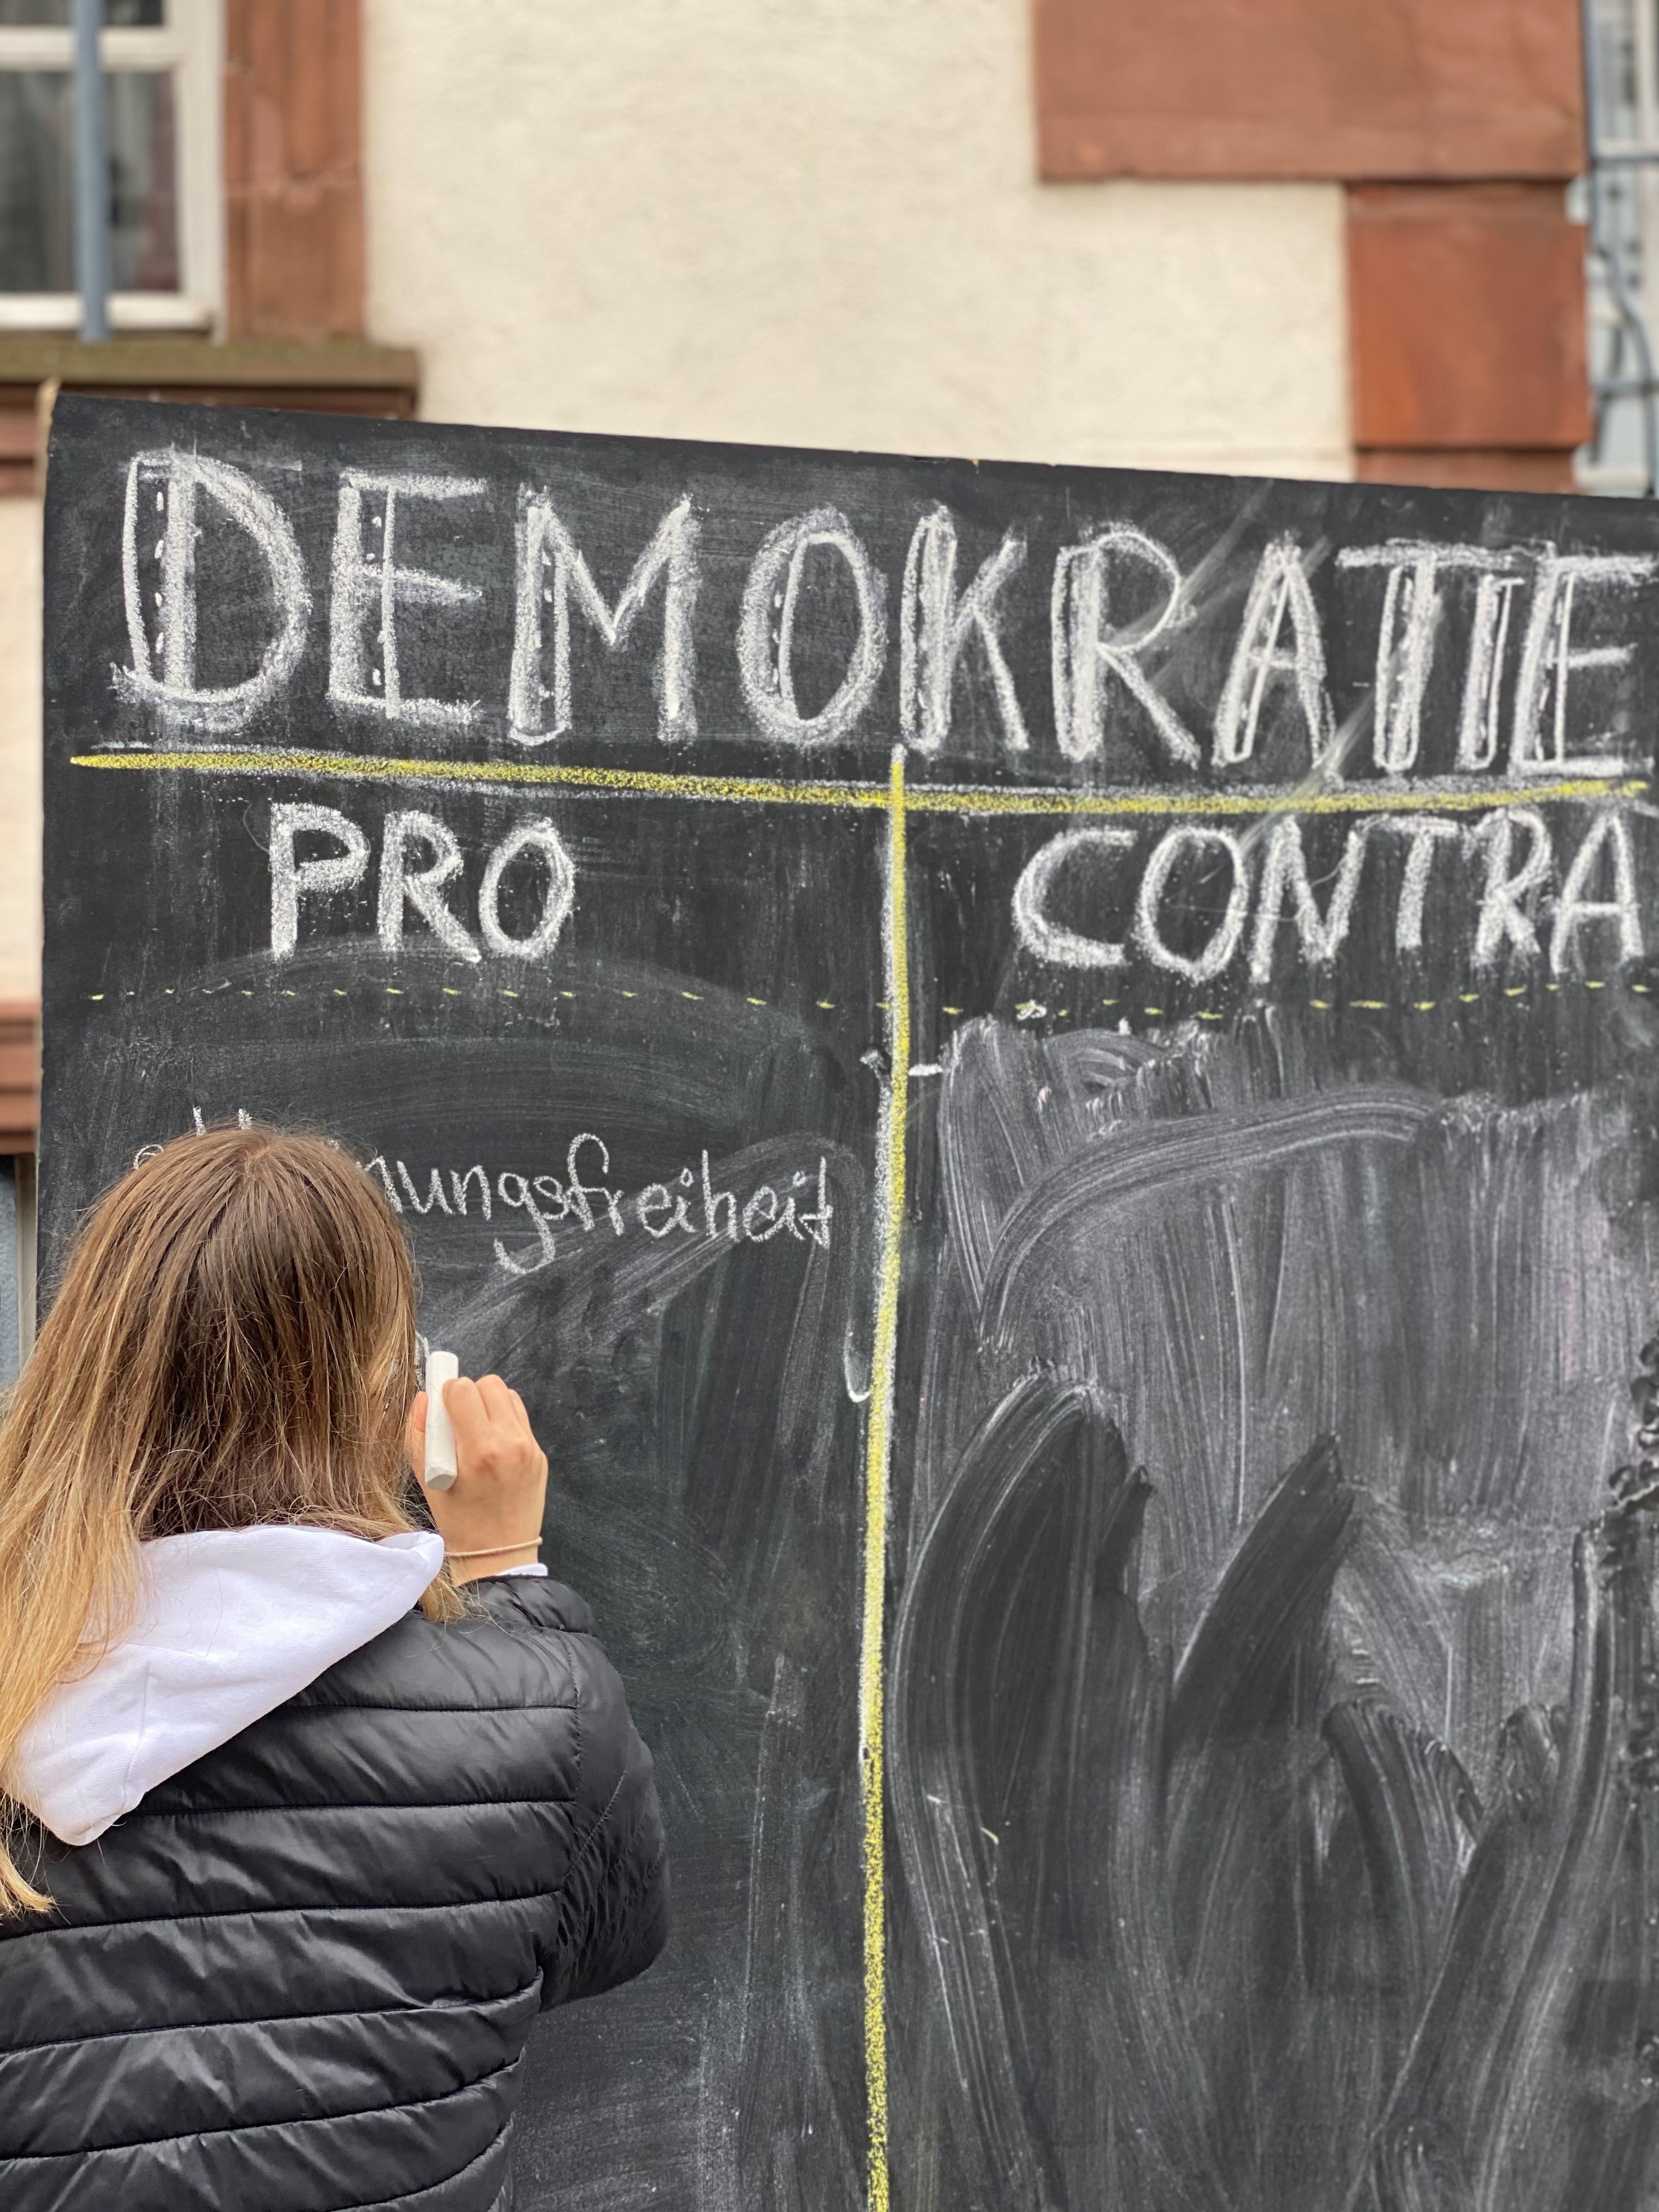 DEMOKRATIE
PRO CONTRA
nungsfreiheit